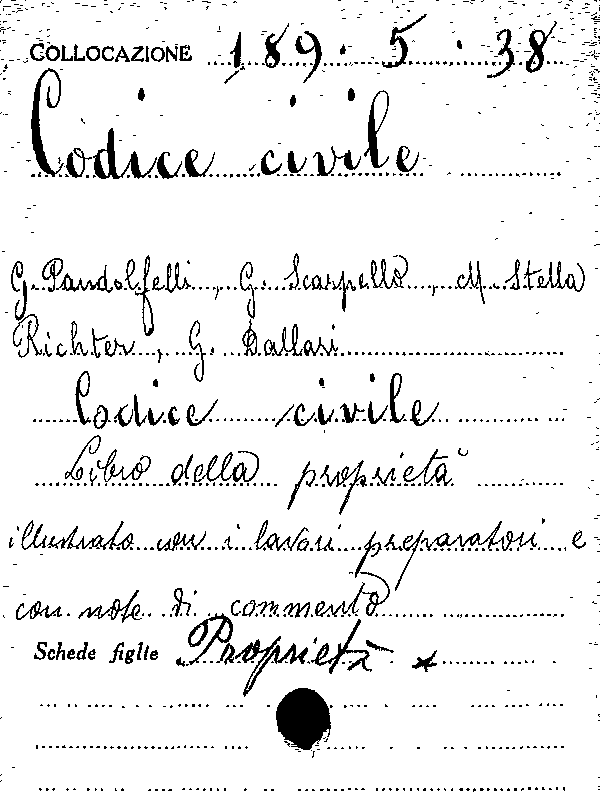 COLLOCAZIONE 189. 5. 38
Codice civile
G. Pandolfelli, G. Scarpello, M. Stella
Richter, G. Dallari
Codice civile
Libro della proprietà
illustrato con i lavori preparatori e
con note di commento
Schede figlie Proprietà *